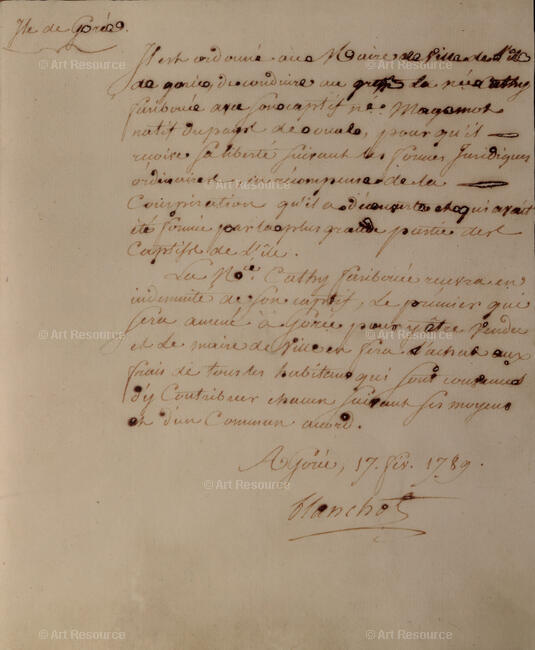 Isle de Gorée.
Il est ordonné au Maire de ville de l'île
de gorée, de conduire au greffe la née Cathy
fariboueé avec son captif né. Magamot
natif du pays de oualo, pour qu'il
recoive sa liberté suivant les formes juridiques
ordinaires, en récompense de la
Conspiration qu'il a découverte et qui avait
été formée par la plus grande partie des
Captifs de l'île.
La Née Cathy fariboueé recevra en
indemnité de son captif, le premier qui
sera amené à Gorée pour y être vendu
et le maire de Ville en fera l'achat aux
frais de tous les habitans qui sont convenus
d'y Contribuer chacun suivant ses moyens
et d'un Commun acord.
A Gorée, 17. fév. 1789.
Blanchot
© Art Resource
© Art Resource
© Art Resource
© Art Resource
© Art Resource
© Art Resource
© Art Resource
© Art Resource
© Art Resource
© Art Resource
© Art Resource
© Art Resource